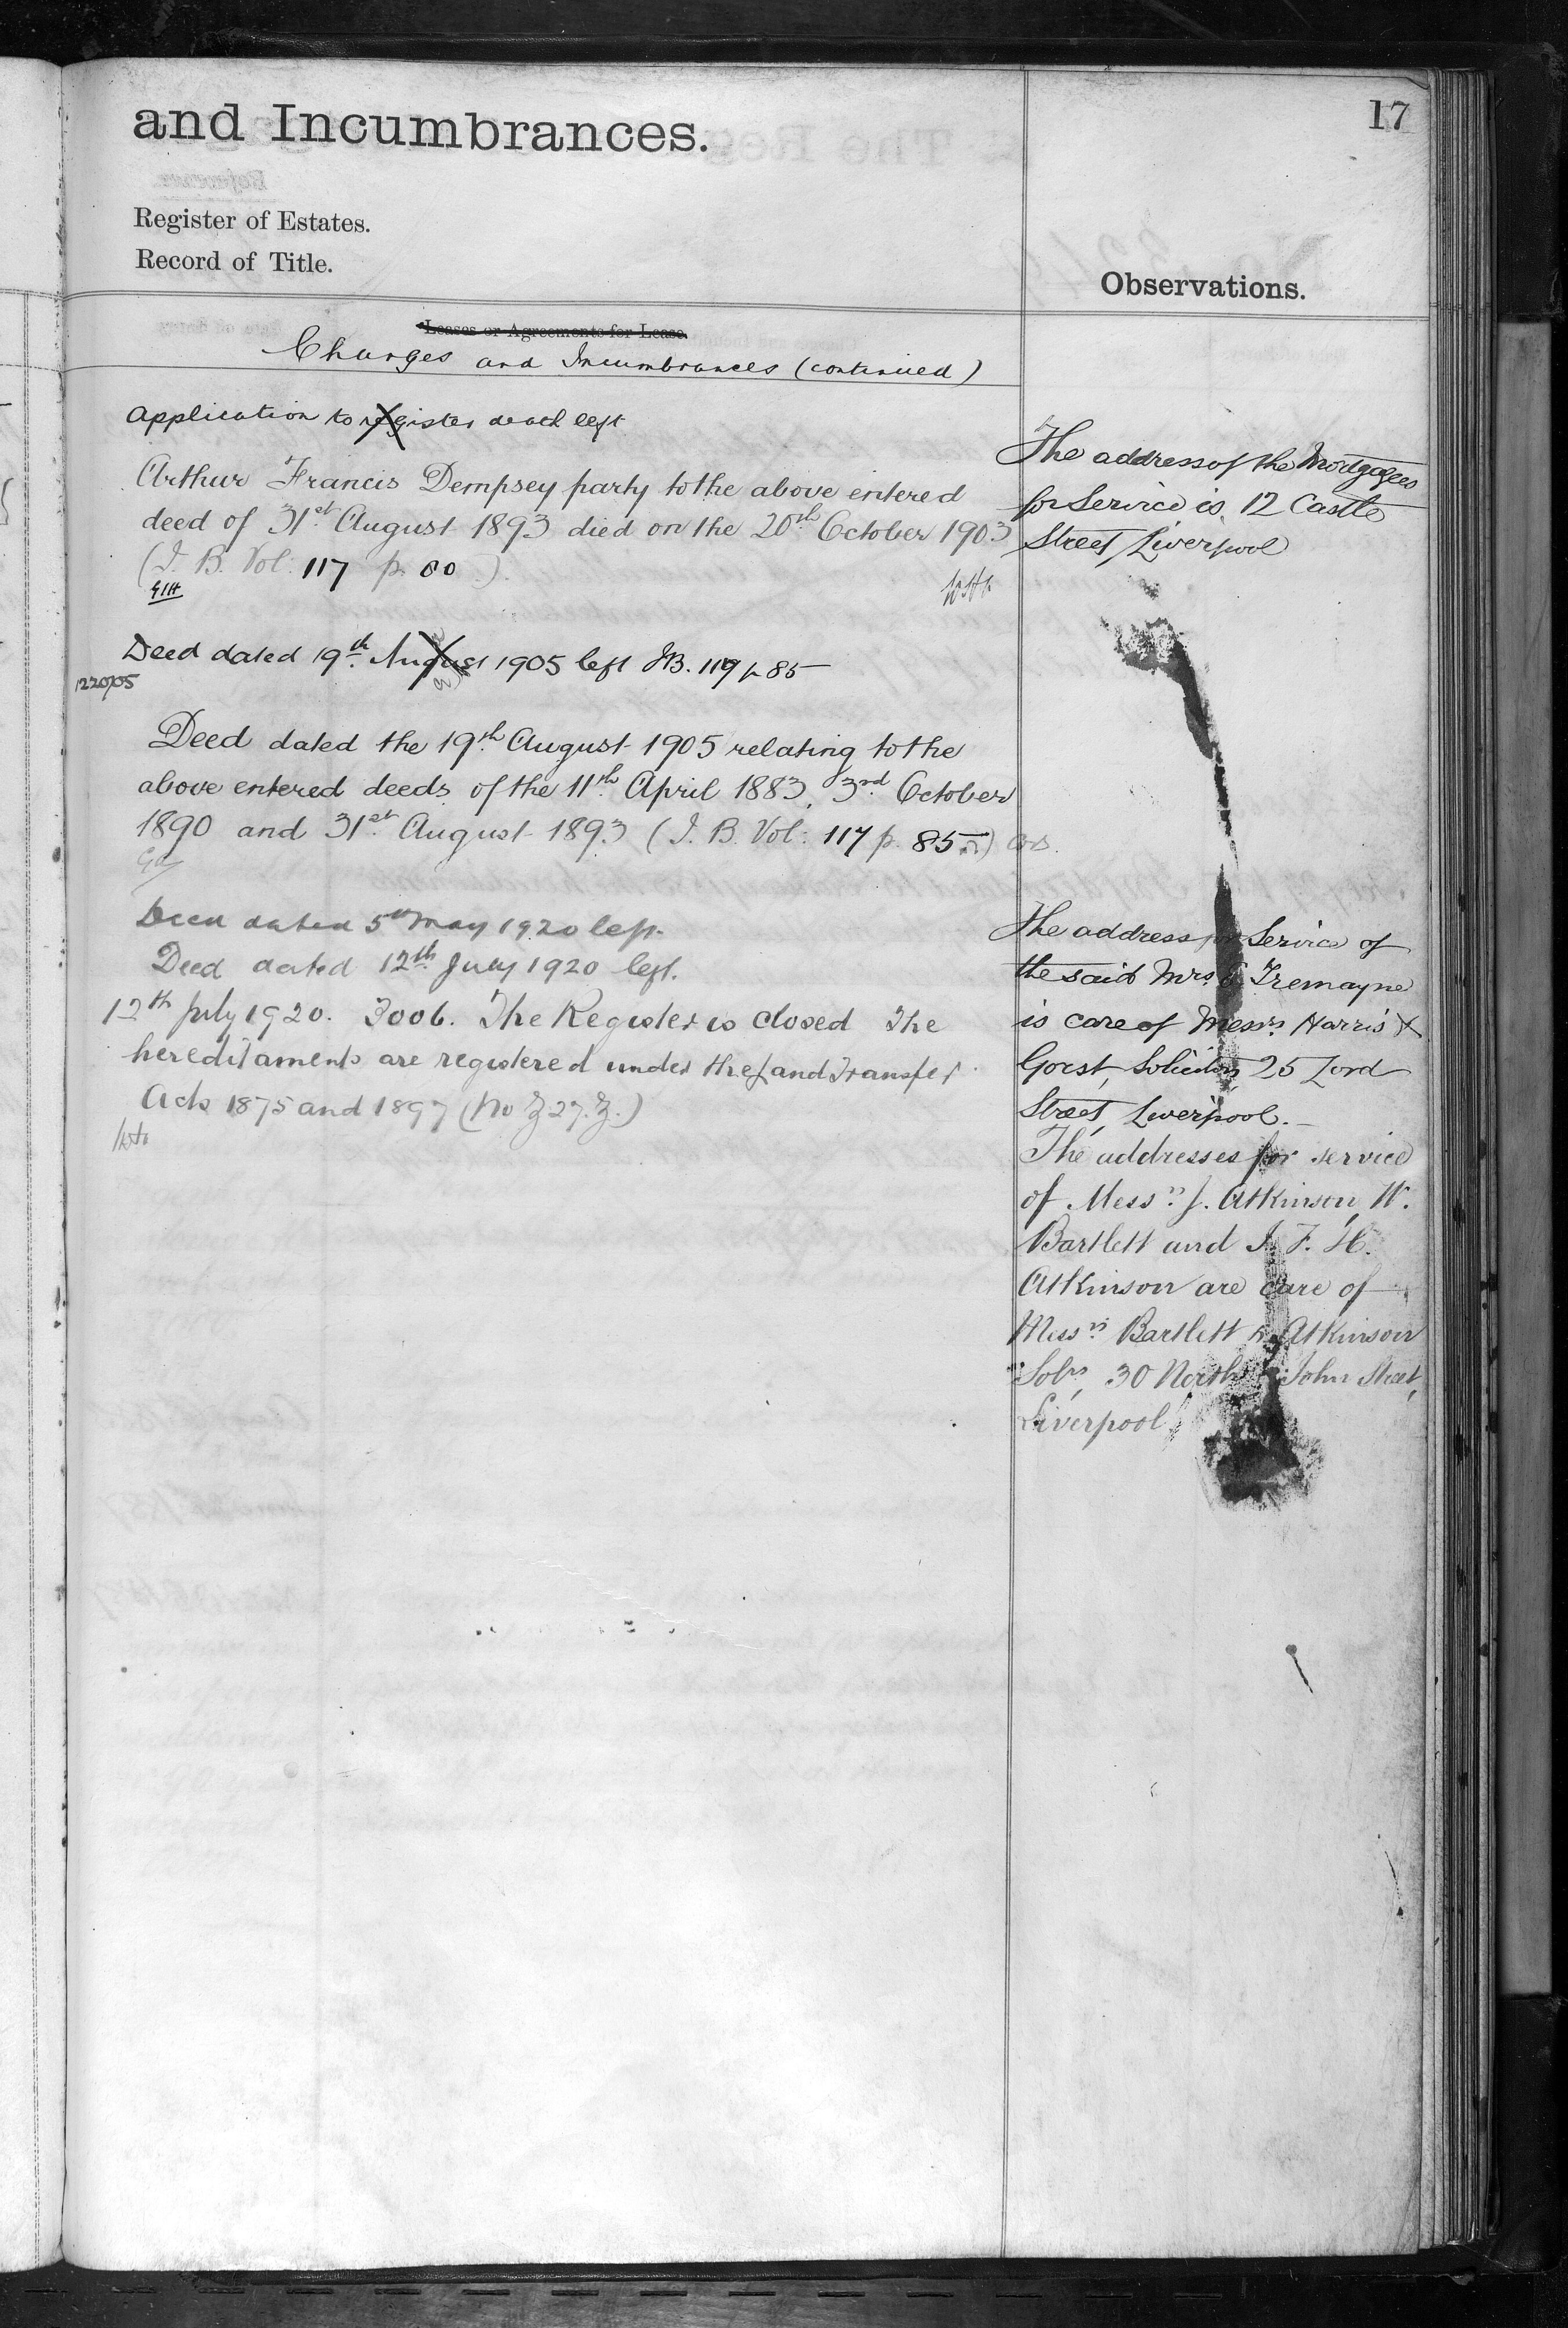 17
and Incumbrances.
Register of Estates.
Record of Title.
Observations.
Leases or Agreements for Lease.
Charges and Incumbrances (continued)
Application to register death left
Arthur Francis Dempsey party to the above entered
deed of 31st August 1893 died on the 20th October 1903
(I. B. Vol: 117 p. 80)
Deed dated 19th August 1905 left IB. 119 p 85
1220/05
Deed dated the 19th August 1905 relating to the
above entered deeds of the 11th April 1883, 3rd October
1890 and 31st August 1893 (I. B. Vol: 117 p. 85)
Deed dated 5th May 1920 left.
Deed dated 12th July 1920 left.
12th July 1920. 3006. The Register is closed The
hereditaments are registered under the Land Transfer
Acts 1875 and 1897 (No Z 27. Z.)
The address of the Mortgagees
for Service is 12 Castle
Street, Liverpool
The address for Service of
the said Mrs Tremayne
is care of Messrs Harris &
Gorst, Solicitors, 25 Lord
Street, Liverpool.
The addresses for service
of Messrs J. Atkinson, W.
Bartlett and J. F. H.
Atkinson are care of
Messrs Bartlett & Atkinson
Solrs, 30 North John Street,
Liverpool